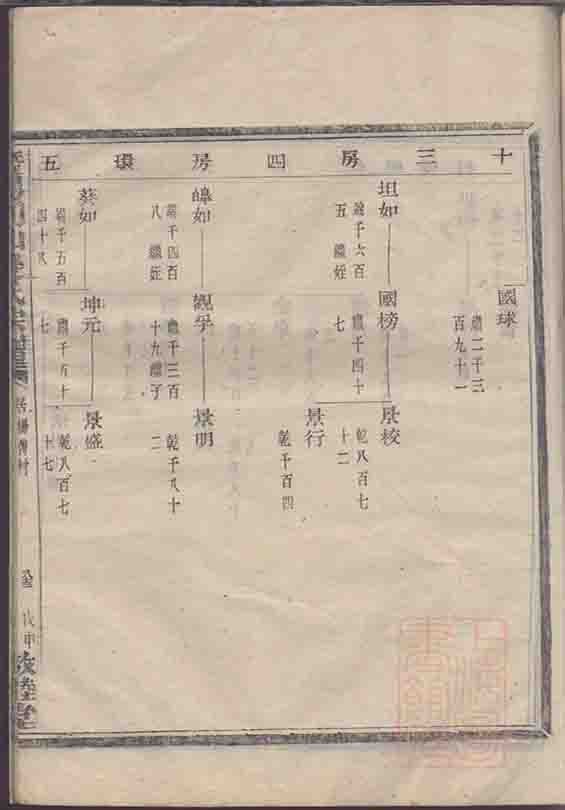 十三房四房環五
國球
繼二千三
百九十一
坦如
繼千六百
五繼姪
國榜
繼千四十
七
景校
乾八百七
十二
景行
乾千百四
皞如
繼千四百
八繼姪
觀孚
繼千三百
十九繼子
景明
乾千八十
二
葵如
繼千五百
四十八
坤元
七
景盛
乾八百七
十七
戊申
敦睦堂